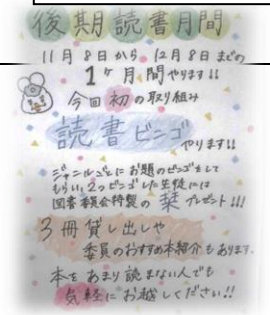 後期読書月間
11月8日から12月8日までの
1ヶ月間やります!!
今回初の取り組み
読書ビンゴ
やります!!
ジャンルごとにお題のビンゴをして
もらい、2つビンゴした生徒には
図書委員会特製の栞プレゼント!!!
3冊貸し出しや
委員のおすすめ本紹介もあります。
本をあまり読まない人でも
気軽にお越しください!!